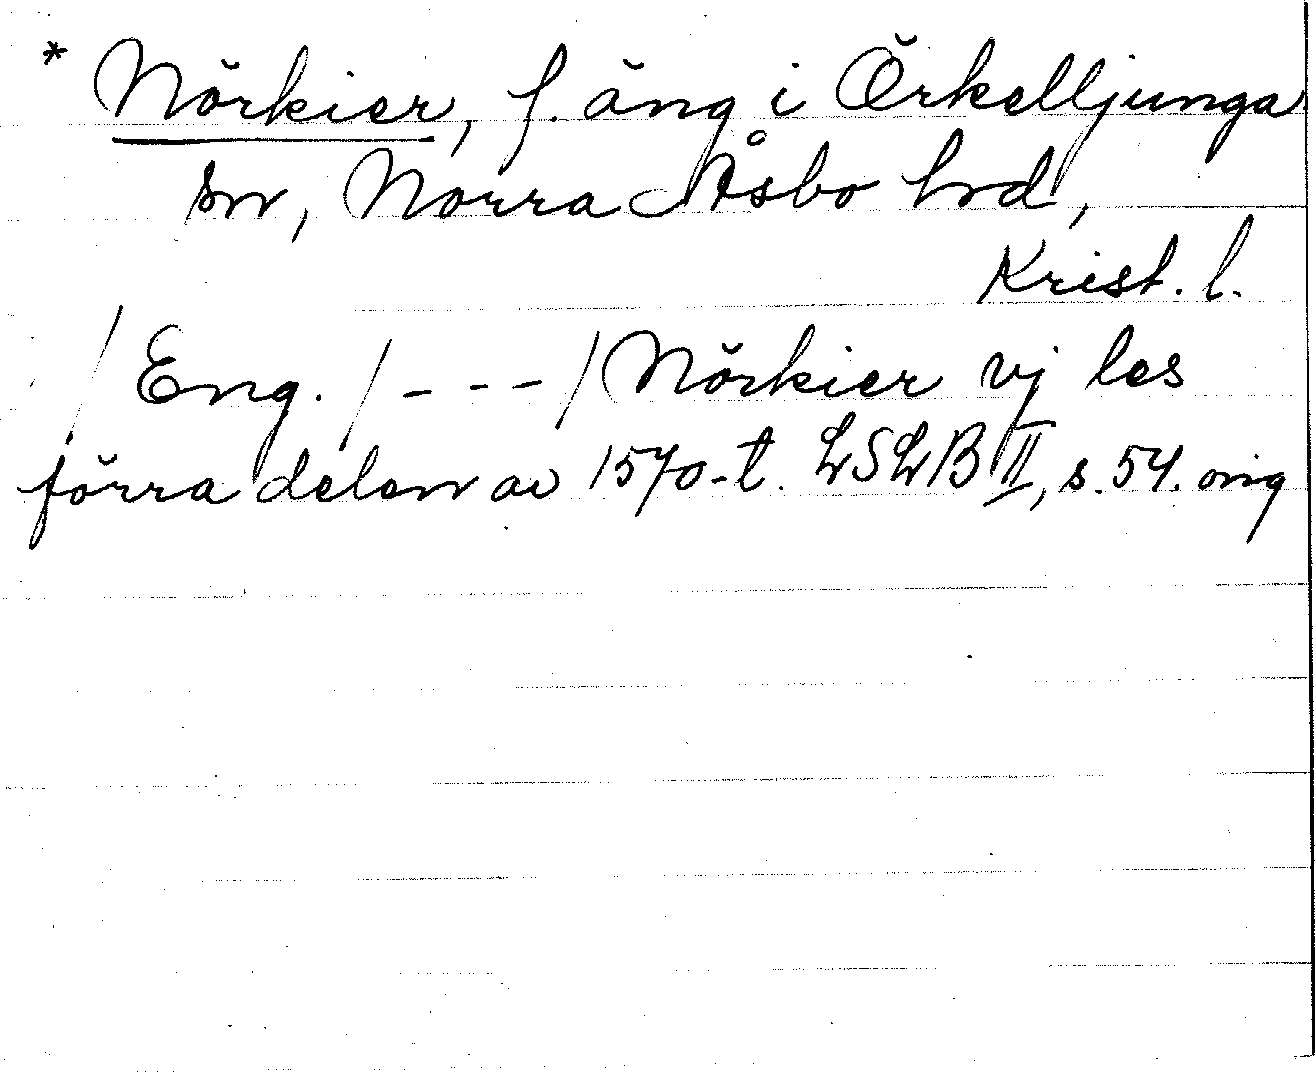 * Nörkier, f. äng i Örkelljunga
sn, Norra Åsbo hd,
Krist. l.
/Eng./ - - - / Nörkier vj les
förra delen av 1570-t. LSLB II, s. 54. orig